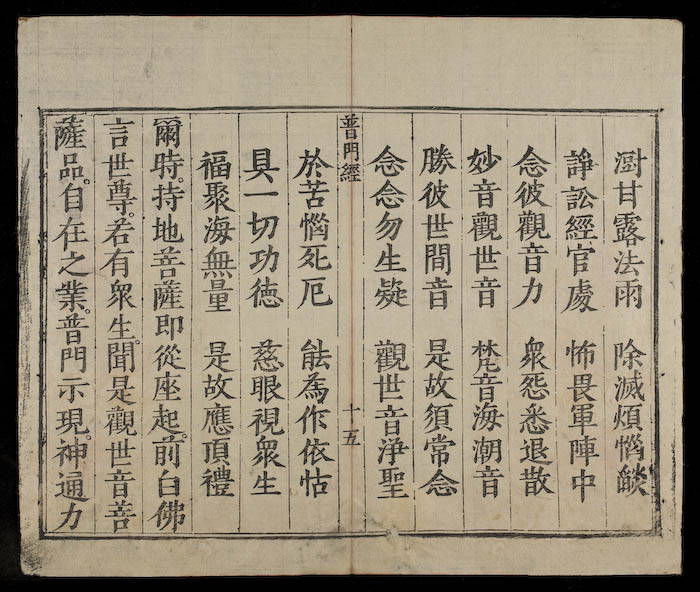 澍甘露法雨 除滅煩惱𦦨
諍訟經官處 怖畏軍陣中
念彼觀音力 衆怨悉退散
妙音觀世音 梵音海潮音
勝彼世間音 是故須常念
念念勿生疑 觀世音淨聖
普門經 十五
於苦惱死厄 能為作依怙
具一切功德 慈眼視衆生
福聚海無量 是故應頂禮
爾時。持地菩薩即從座起。前白佛
言世尊。若有衆生。聞是觀世音菩
薩品。自在之業。普門示現。神通力